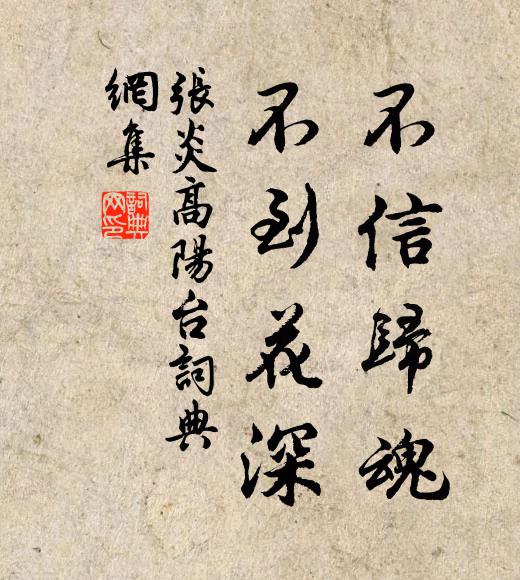 不信歸魂
不到花深
張炎高陽台詞典
網集
詞典網印